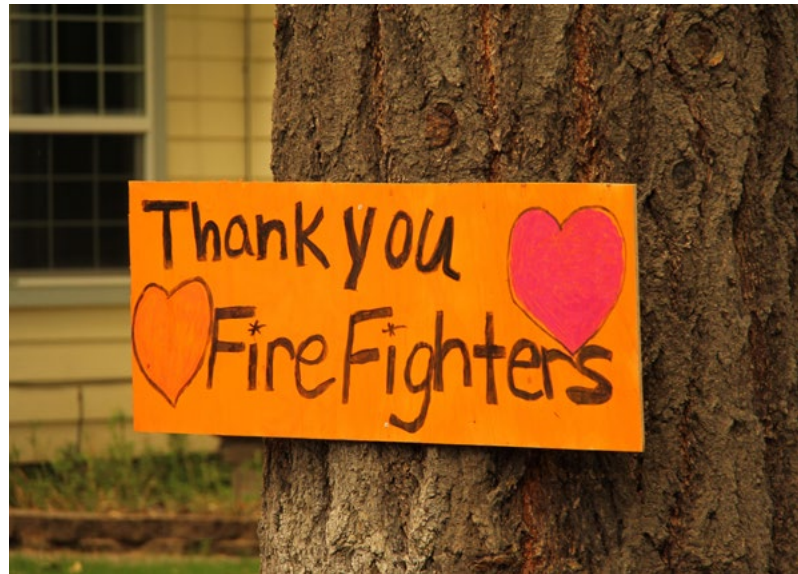 Thank you
Fire Fighters